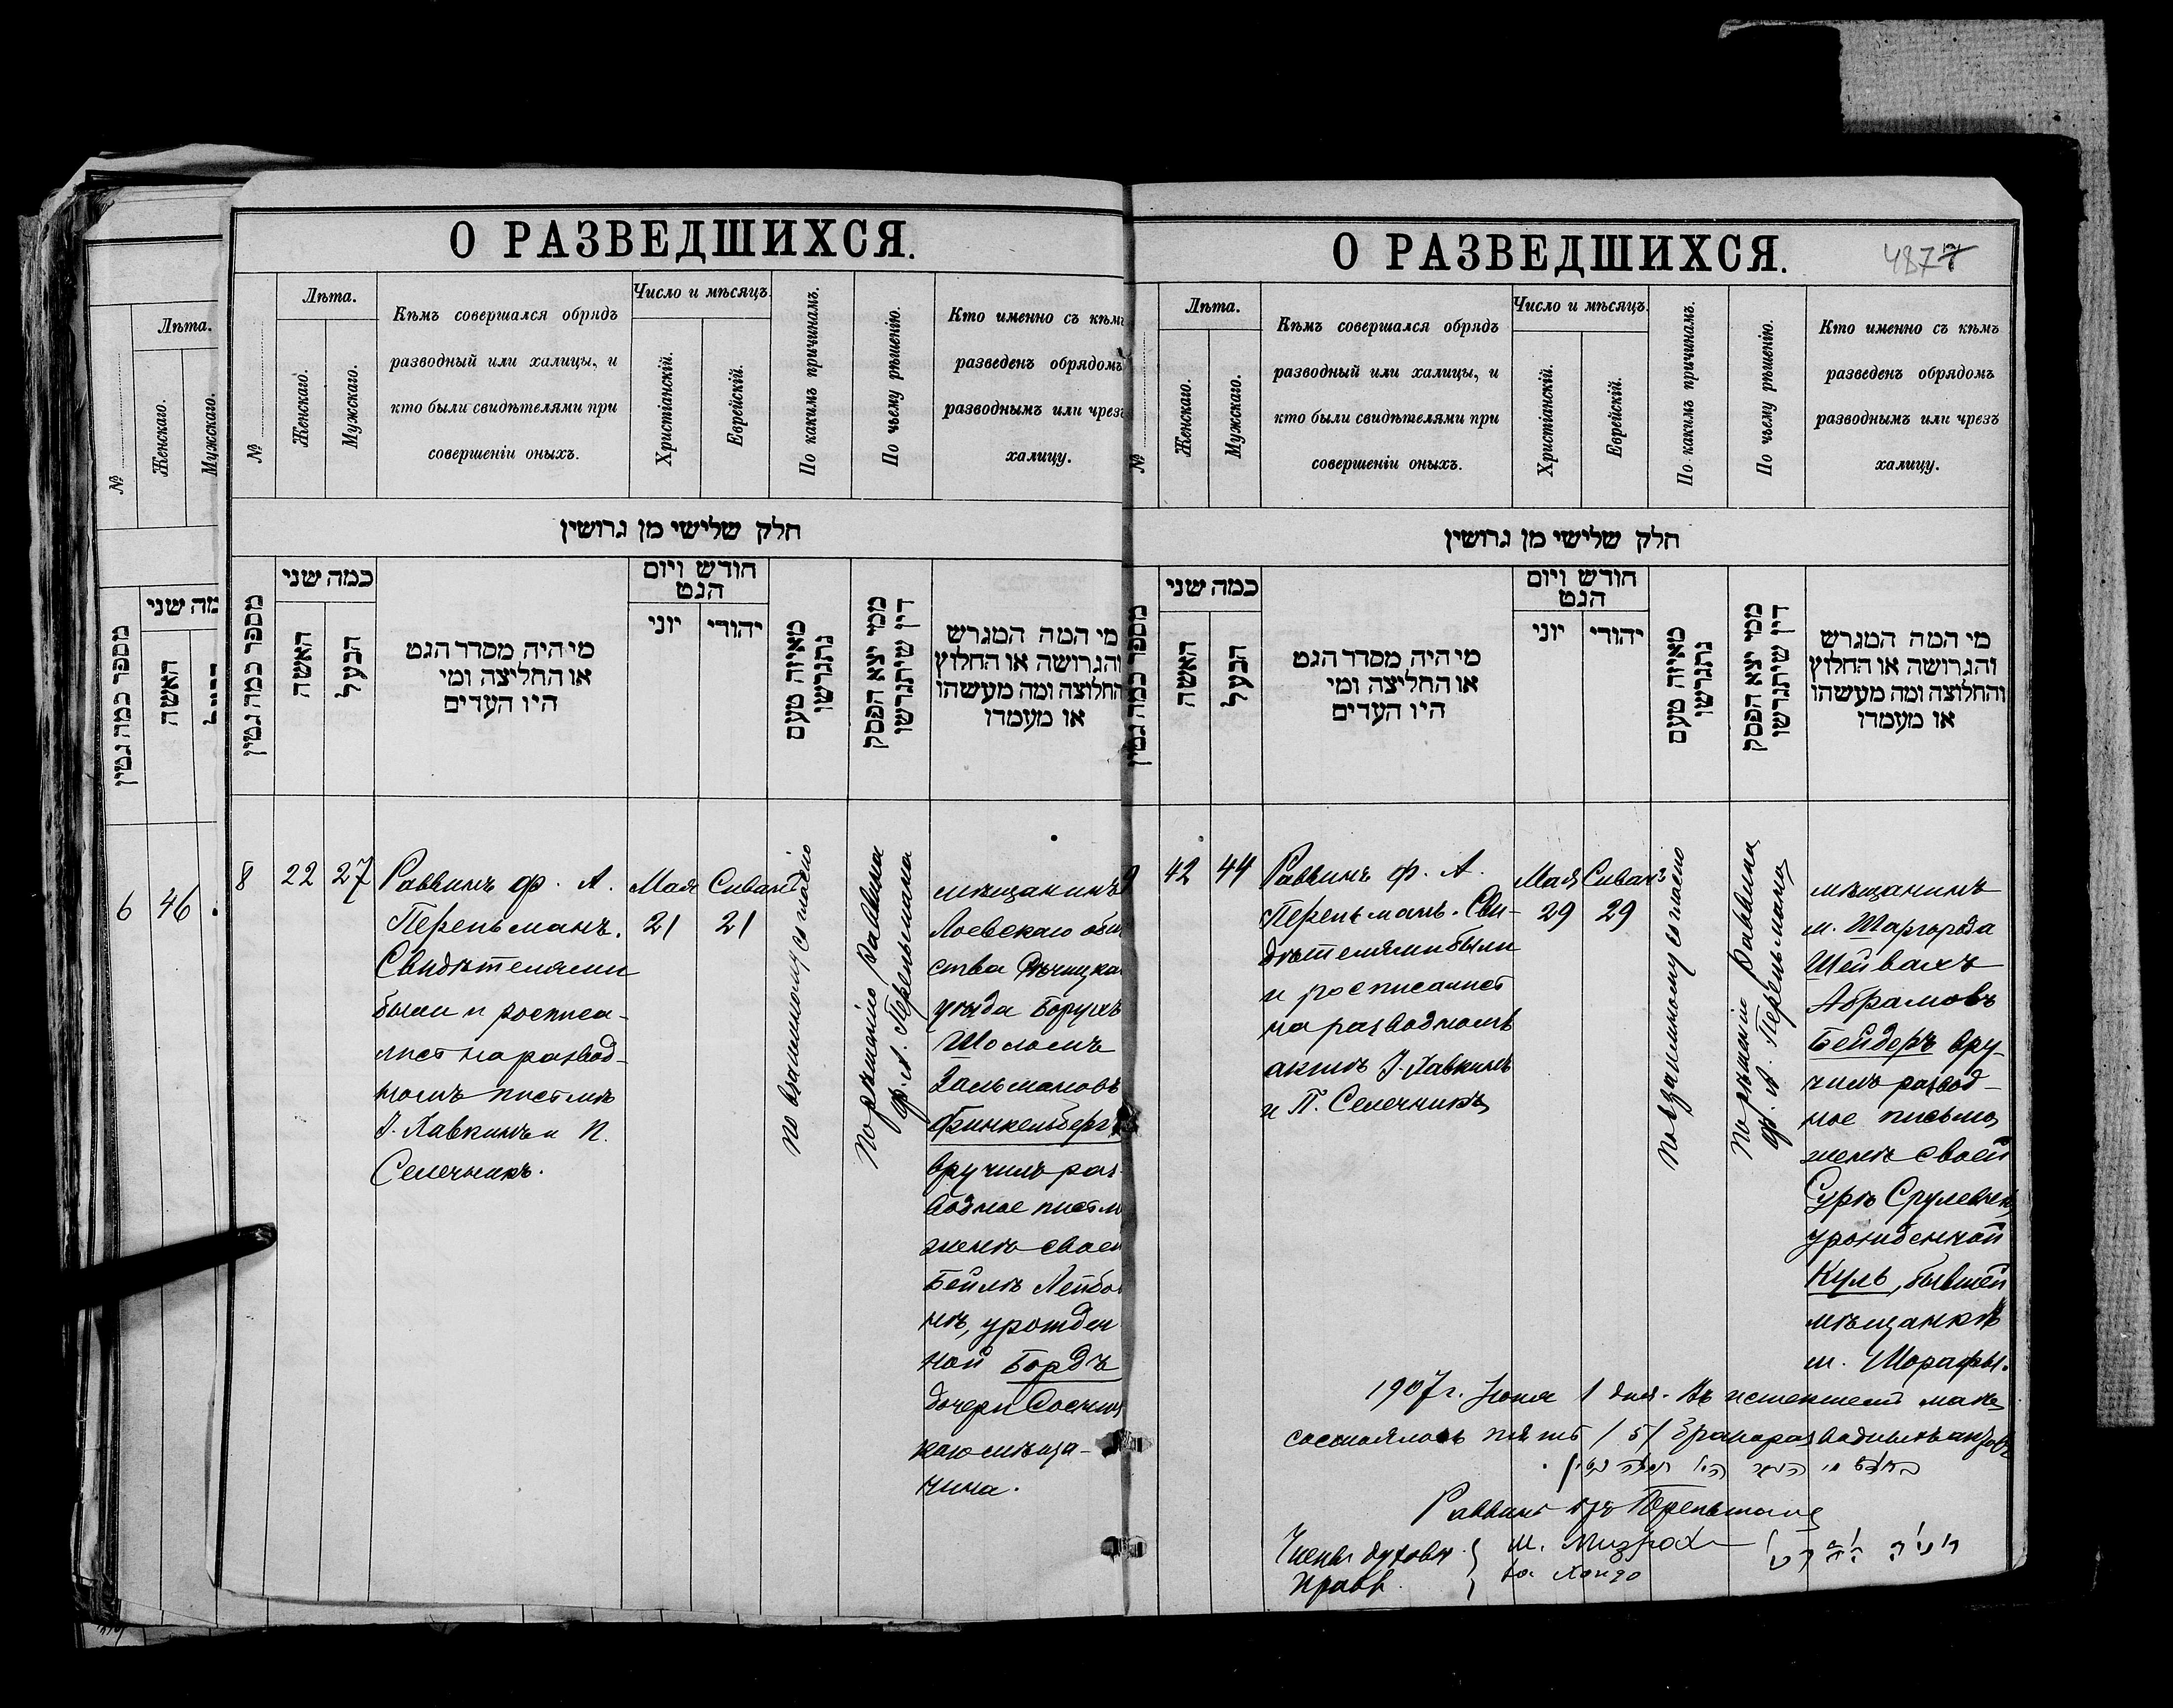 Лѣта.
№
Женскаго.
Мужскаго.
מה שני
מספר כמה גטין
האשה
6
46
О РАЗВЕДШИХСЯ.
№
Лѣта.
Женскаго.
Мужскаго.
Кѣмъ совершался обрядъ
разводный или халицы, и
кто были свидѣтелями при
совершеніи оныхъ.
Число и мѣсяцъ.
Христіанскій.
Еврейскій.
По какимъ причинамъ.
По чьему рѣшенію.
Кто именно съ кѣмъ
разведенъ обрядомъ
разводнымъ или чрезъ
халицу.
חלק שלישי מן גרושין
מספר כמה גטין
כמה שני
האשה
הבעל
מי היה מסדר הגט
או החליצה ומי
היו העדים
חודש ויום
הגט
יוני
יהודי
מאיזה טעם
נתגרשו
ממי יצא הפסק
דין שיתגרשו
מי המה המגרש
והגרושה או החלוץ
והחלוצה ומה מעשהו
או מעמדו
8
22
27
Раввинъ ф. А.
Перельманъ.
Свидѣтелями
были и росписа-
лись на развод-
номъ письмѣ
І. Хавкинъ и П.
Селечникъ.
Мая
21
Сиванъ
21
по взаимному согласію
По рѣшенію раввина
ф. А. Перельмана
мѣщанинъ
Лоевскаго общ
ства Рѣчицка
уѣзда Борухъ
Шоломъ
Залмановъ
Финкельбергъ
вручилъ раз-
водное письмо
женѣ своей
Бейлѣ Лейбо
нѣ, урожден
ной Бордъ
дочери Сосниц
каго мѣща-
нина.
О РАЗВЕДШИХСЯ.
487
№
Лѣта.
Женскаго.
Мужскаго.
Кѣмъ совершался обрядъ
разводный или халицы, и
кто были свидѣтелями при
совершеніи оныхъ.
Число и мѣсяцъ.
Христіанскій.
Еврейскій.
По какимъ причинамъ.
По чьему рѣшенію.
Кто именно съ кѣмъ
разведенъ обрядомъ
разводнымъ или чрезъ
халицу.
חלק שלישי מן גרושין
מספר כמה גטין
כמה שני
האשה
הבעל
מי היה מסדר הגט
או החליצה ומי
היו העדים
חודש ויום
הגט
יוני
יהודי
מאיזה טעם
נתגרשו
ממי יצא הפסק
דין שיתגרשו
מי המה המגרש
והגרושה או החלוץ
והחלוצה ומה מעשהו
או מעמדו
42
44
Раввинъ ф. А.
Перельманъ. Сви-
дѣтелями были
и росписались
на разводномъ
актѣ І. Хавкинъ
и П. Селечникъ
Мая
29
Сиванъ
29
по взаимному согласію
По рѣшенію раввина
ф. А. Перельмана
мѣщанинъ
м. Шаргорода
Шейвахъ
Абрамовъ
Бендеръ вру-
чилъ развод-
ное письмо
женѣ своей
Сурѣ Срулевнѣ
урожденной
Куль, бывшей
мѣщанкѣ
м. Шарафы.
1907 г. Іюня 1 дня. Въ истекшемъ маѣ
состоялось пять /5/ бракоразводныхъ актовъ
Раввинъ Перельманъ
Члены духовн.
Правл.
М. Мизрахи